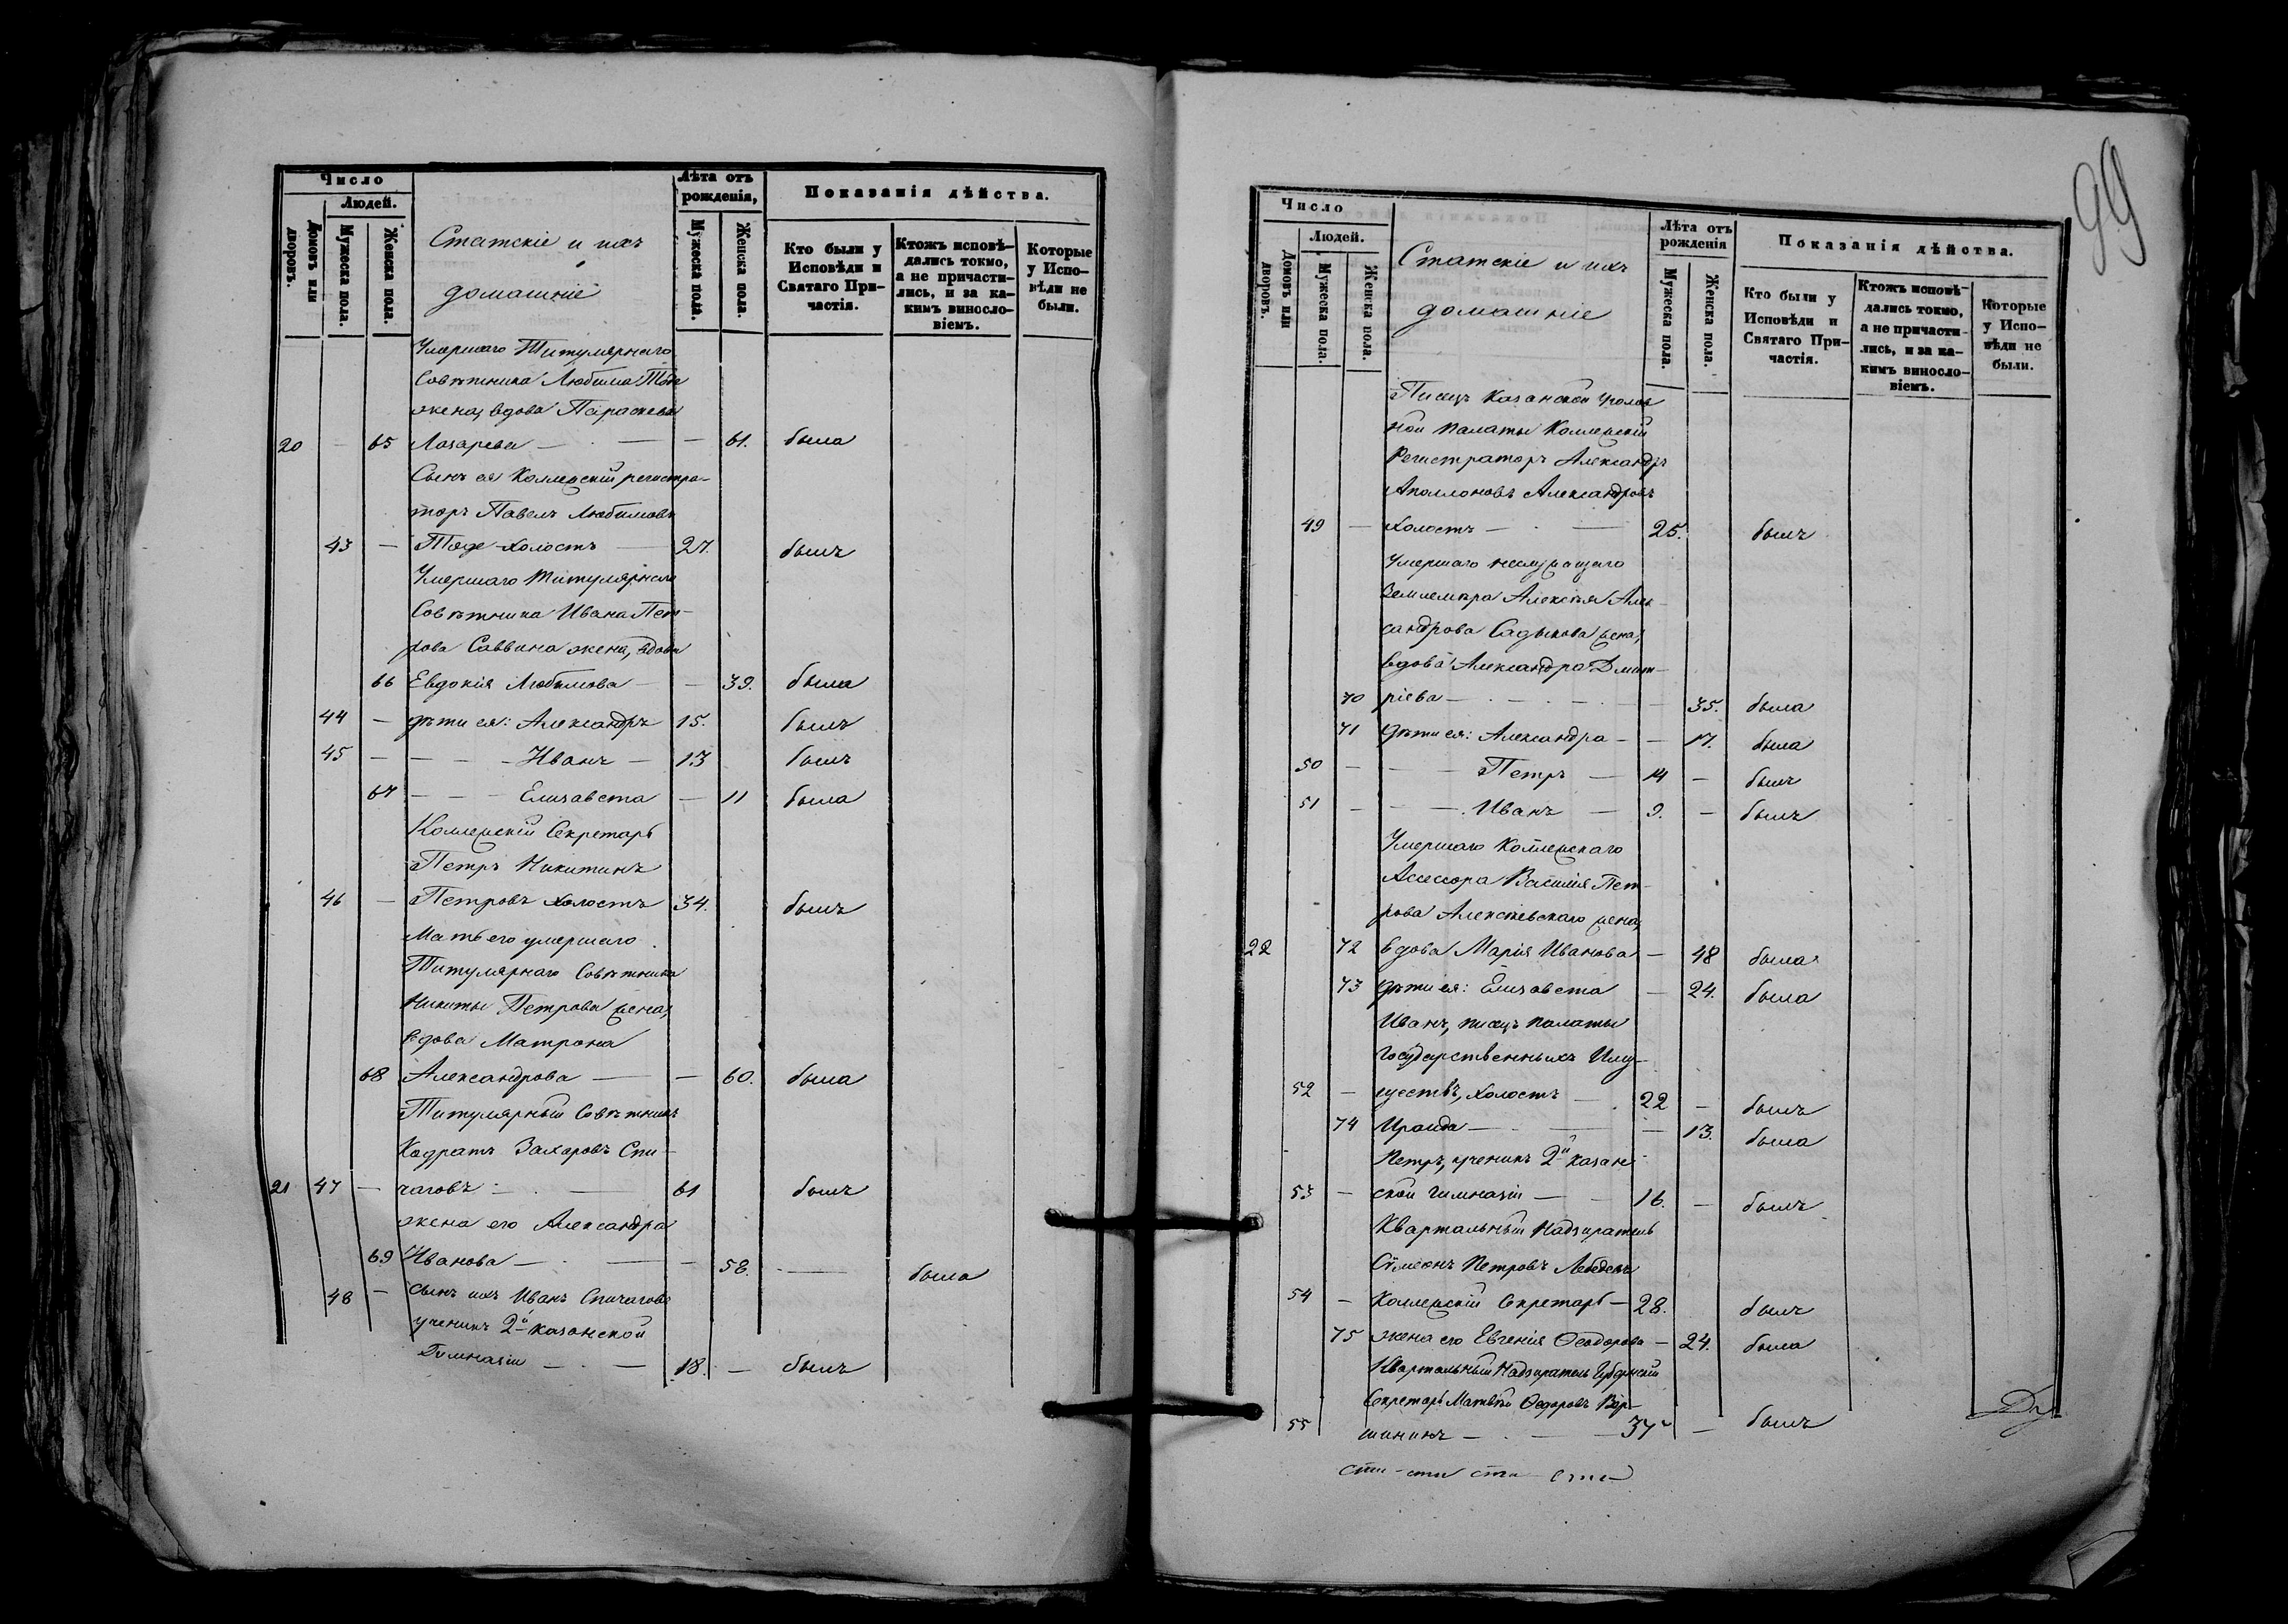 Число
Людей.
Домовъ или дворовъ.
Мужеска пола.
Женска пола.
Статскіе и ихъ
домашніе
Лѣта отъ рожденія,
Мужеска пола.
Женска пола.
Показанія дѣйства.
Кто были у Исповѣди и Святаго Причастія.
Ктожъ исповѣдались токмо, а не причастились, и за какимъ винословіемъ.
Которые у Исповѣди не были.
Умершаго Титулярнаго
Совѣтника Любима
жена, вдова Параскева
20 — 65 Лазарева — — 61. была
Сынъ ея Коллежскій регистра-
торъ Павелъ Любимовъ
43 — холостъ — 27. былъ
Умершаго Титулярнаго
Совѣтника Ивана Пет-
рова Саввина жена, вдова
66 Евдокія Любимова — — 39. была
44 — дѣти ея: Александръ 15. былъ
45 — — — — Иванъ — 13 былъ
67 — — — Елизавета — 11 была
Коллежскій Секретарь
Петръ Никитинъ
46 — Петровъ холостъ 34. былъ
Мать его умершаго
Титулярнаго Совѣтника
Никиты Петрова жена,
вдова Матрона
68 Александрова — — 60. была
Титулярный Совѣтникъ
Кодратъ Захаровъ Спи-
21 47 — чаговъ — — 61 былъ
жена его Александра
69 Иванова — — — 58. — была
48 — сынъ ихъ Иванъ Спичаговъ
ученикъ 2й Казанской
Гимназіи — — 18. — былъ
99
Число
Людей.
Домовъ или дворовъ.
Мужеска пола.
Женска пола.
Статскіе и ихъ
домашніе
Лѣта отъ рожденія
Мужеска пола.
Женска пола.
Показанія дѣйства.
Кто были у Исповѣди и Святаго Причастія.
Ктожъ исповѣдались токмо, а не причастились, и за какимъ винословіемъ.
Которые у Исповѣди не были.
Писецъ Казанской Уголов
ной Палаты Коллежскій
Регистраторъ Александръ
Аполлоновъ Александровъ
49 — холостъ — — 25. былъ
Умершаго неслужащаго
Землемѣра Алексѣя Алек-
сандрова Садыкова жена,
вдова Александра Дмит-
70 ріева — — — 35. была
71 Дѣти ея: Александра — — 17. была
50 — — Петръ — 14 — былъ
51 — — — Иванъ — 9. — былъ
Умершаго Коллежскаго
Ассессора Василія Пет-
рова Алексѣевскаго жена,
22 72 вдова Марія Иванова — 48 была
73 дѣти ея: Елизавета — 24. была
Иванъ, писецъ палаты
Государственныхъ Иму-
52 — ществъ, холостъ — 22 — былъ
74 Ираида — — — 13. была
Петръ, ученикъ 2й Казан-
53 — ской гимназіи — 16. — былъ
Квартальный Надзиратель
Сѵмеонъ Петровъ Лебедевъ
54 — Коллежскій Секретарь — 28. былъ
75 жена его Евгенія Ѳеодорова — 24. была
Квартальный Надзиратель Губернскій
Секретарь Матвѣй Ѳедоровъ Вер-
55 шининъ — — 37 — былъ